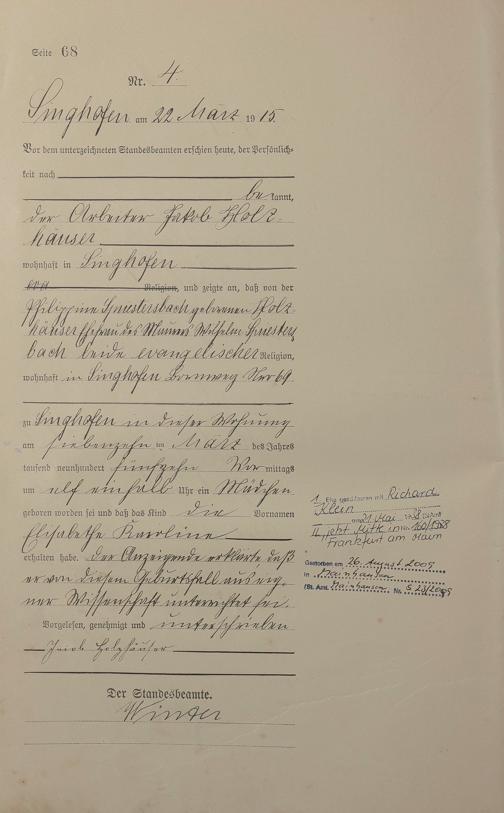 Seite 68
Nr. 4
Singhofen am 22 März 1915.
Vor dem unterzeichneten Standesbeamten erschien heute, der Persönlich-
keit nach
bekannt,
der Arbeiter Jakob Holz-
häuser
wohnhaft in Singhofen
Religion, und zeigte an, daß von der
Philippine Spriestersbach geborenen Holz-
häuser Ehefrau des Maurers Wilhelm Spriesters
bach beide evangelischer Religion,
wohnhaft in Singhofen Bornweg Nro 69
zu Singhofen in dieser Wohnung
am siebenzehn ten März des Jahres
tausend neunhundert fünfzehn Vor mittags
um elf einhalb Uhr ein Mädchen
geboren worden sei und daß das Kind die Vornamen
Elisabethe Karoline
erhalten habe. Der Anzeigende erklärte daß
er von diesem Geburtsfall aus eig-
ner Wissenschaft unterrichtet sei.
Vorgelesen, genehmigt und unterschrieben
Jacob Holzhäuser
Der Standesbeamte.
Winter
1. Ehe geschlossen mit Richard
Klein
am 21 Mai
II jetzt
Frankfurt am Main
Gestorben am 26. August 2009
in Mainhausen
(St. Amt Mainhausen Nr. S 28/2009